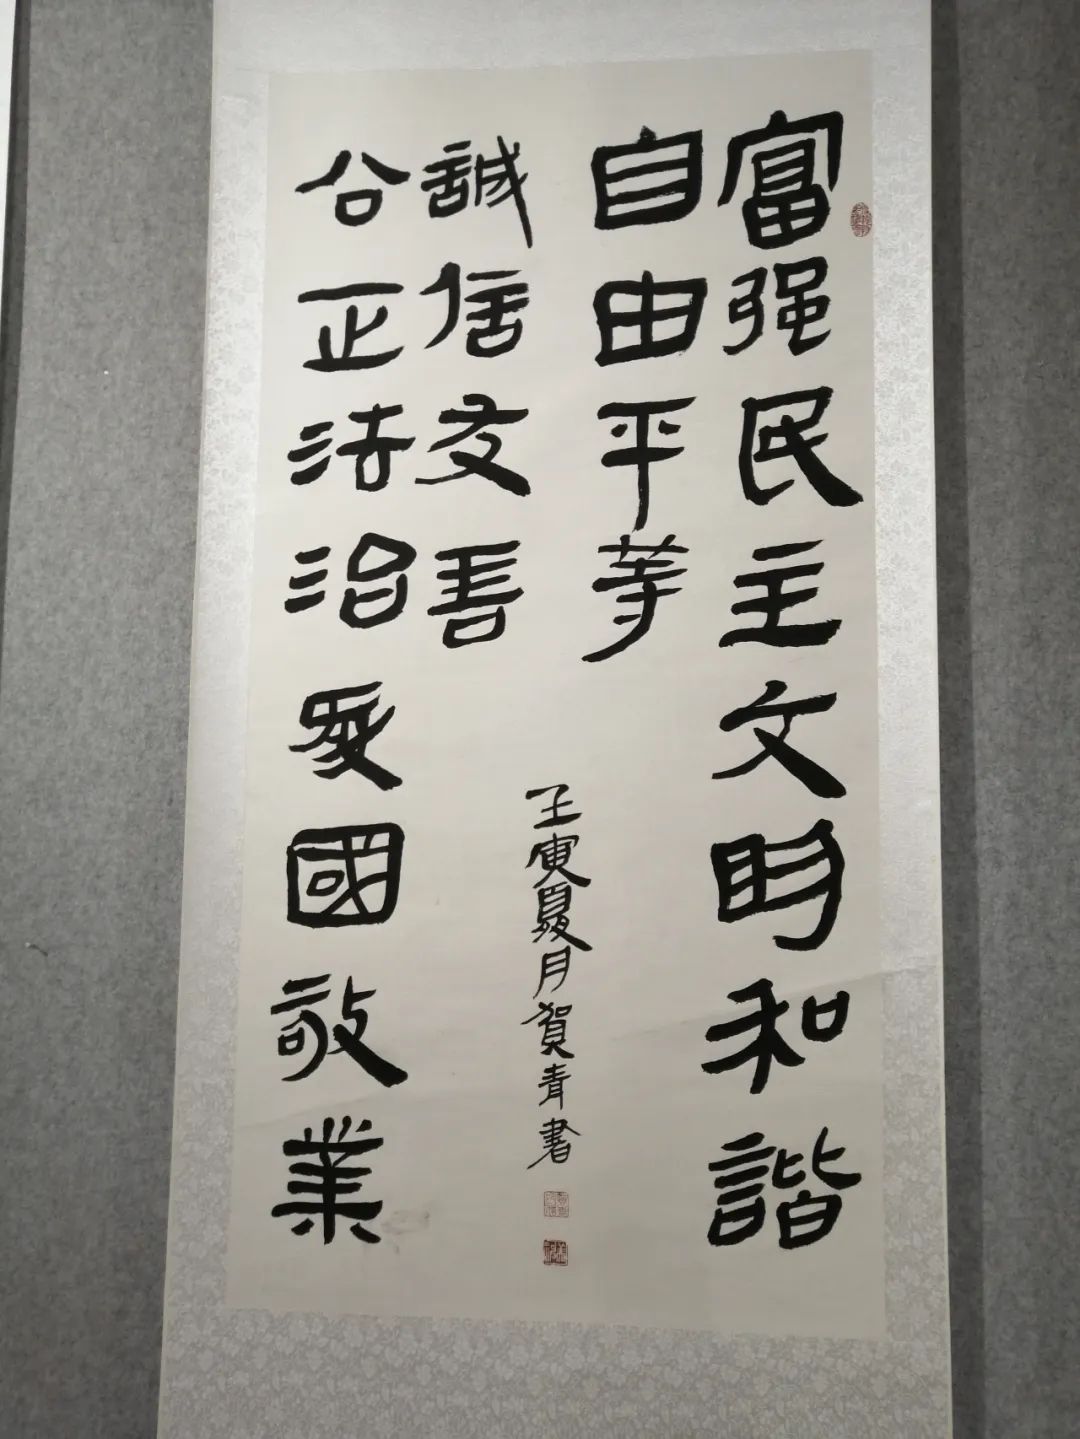 富强民主文明和諧
自由平等
公正法治愛國敬業
誠信友善
壬寅夏月賀青書